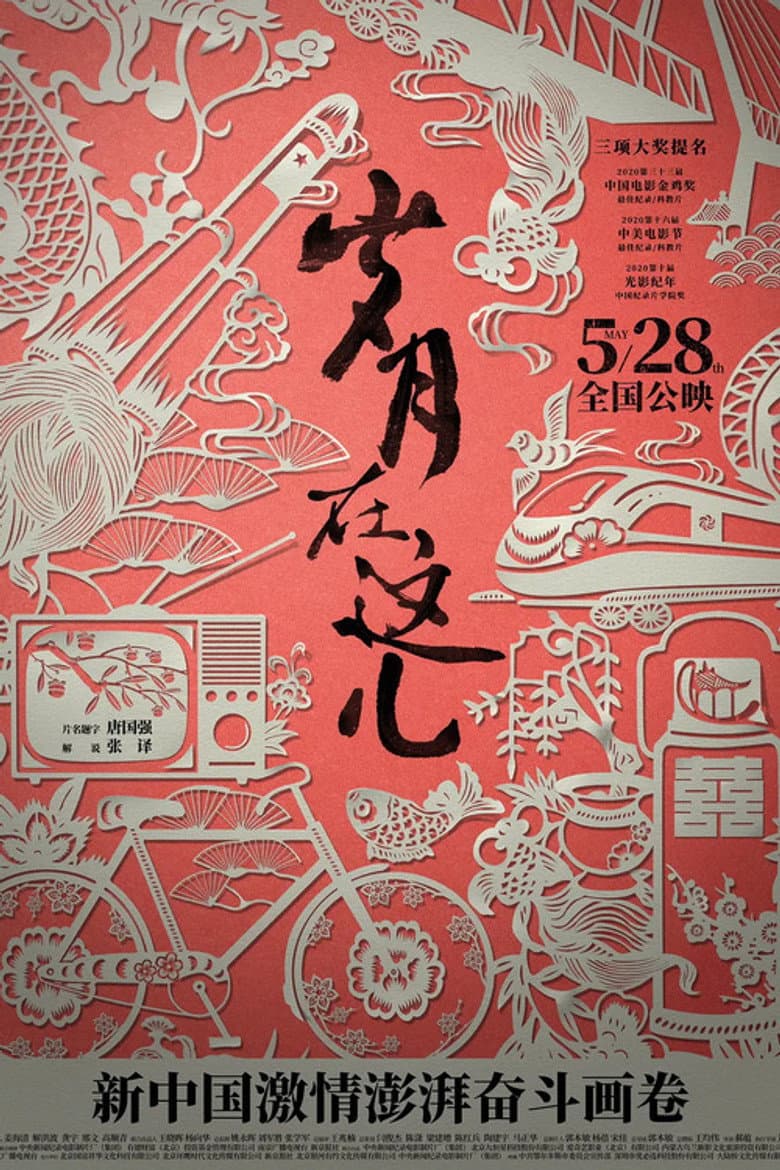 三项大奖提名
2020第三十三届
中国电影金鸡奖
最佳纪录/科教片
2020第十六届
中美电影节
最佳纪录/科教片
2020第十届
光影纪年
中国纪录片学院奖
5/28th
MAY
全国公映
岁月在这儿
片名题字 唐国强
解 说 张 译
囍
新中国激情澎湃奋斗画卷